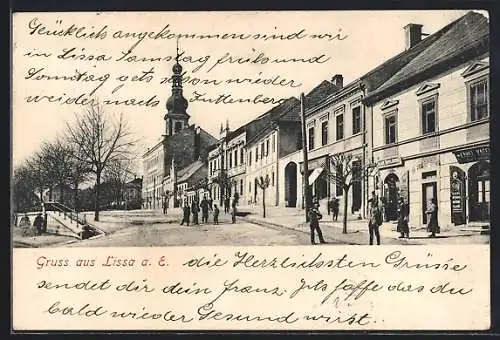 Glücklich angekommen sind wir
in Lissa Samstag früh und
Sonntag geht es schon wieder
weider nach Kuttenberg
Gruss aus Lissa a. E.
die Herzliebsten Grüsse
sendet dir dein Franz. hoffe das du
bald wieder Gesund wirst..